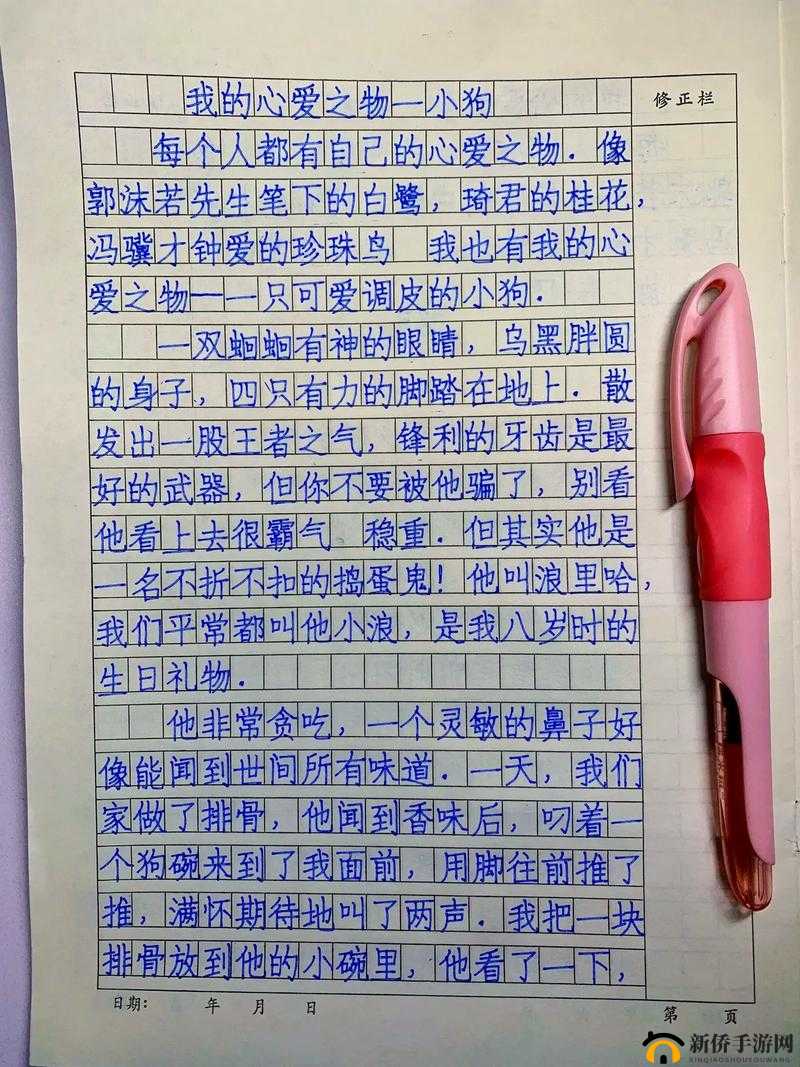 我的心爱之物—小狗
修正栏
每个人都有自己的心爱之物.像
郭沫若先生笔下的白鹭，琦君的桂花，
冯骥才钟爱的珍珠鸟 我也有我的心
爱之物——一只可爱调皮的小狗.
一双蛔蛔有神的眼睛，乌黑胖圆
的身子，四只有力的脚踏在地上.散
发出一股王者之气，锋利的牙齿是最
好的武器，但你不要被他骗了，别看
他看上去很霸气 稳重.但其实他是
一名不折不扣的捣蛋鬼！他叫浪里哈，
我们平常都叫他小浪，是我八岁时的
生日礼物.
他非常贪吃，一个灵敏的鼻子好
像能闻到世间所有味道.一天，我们
家做了排骨，他闻到香味后，叼着一
个狗碗来到了我面前，用脚往前推了
推，满怀期待地叫了两声.我把一块
排骨放到他的小碗里，他看了一下，
日期： 年 月 日
第 页
新侨手游网
XINQIAOSHOUYOUWANG